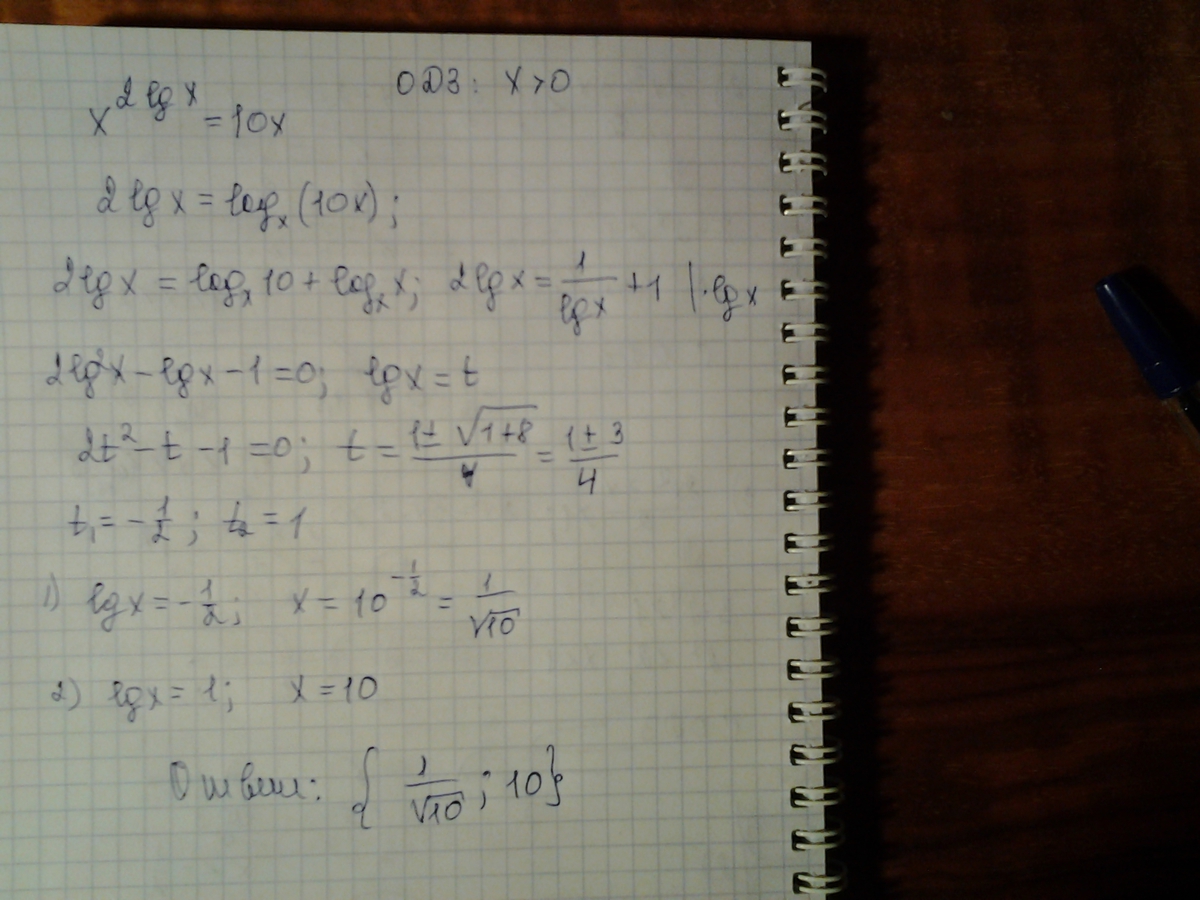 x^(2 lg x) = 10x    ОДЗ: x > 0
2 lg x = log_x (10x);
2 lg x = log_x 10 + log_x x;  2 lg x = 1/(lg x) + 1 | · lg x
2 lg² x − lg x − 1 = 0;  lg x = t
2t² − t − 1 = 0;  t = (1 ± √(1+8))/4 = (1 ± 3)/4
t₁ = −1/2;  t₂ = 1
1) lg x = −1/2;  x = 10^(−1/2) = 1/√10
2) lg x = 1;  x = 10
Ответ: { 1/√10 ; 10 }